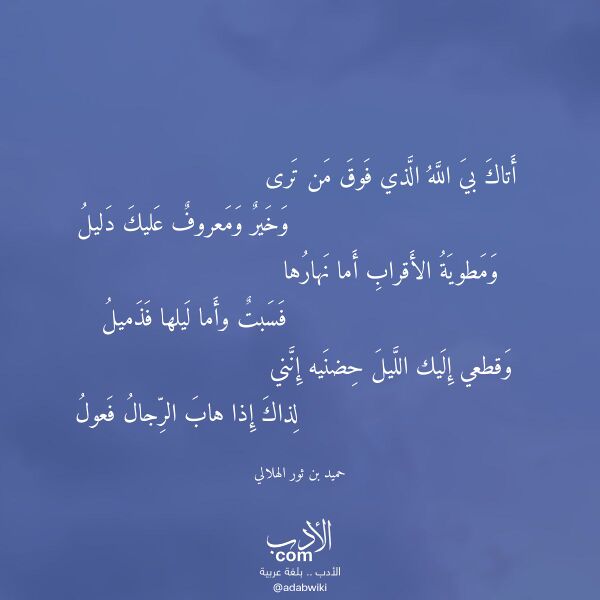 أَتاكَ بِيَ اللَّهُ الَّذي فَوقَ مَن تَرى
وَخَيرٌ وَمَعروفٌ عَليكَ دَليلُ
وَمَطويَةُ الأَقرابِ أَما نَهارُها
فَسَبتٌ وأَما لَيلها فَذَميلُ
وَقطعي إِلَيك اللَّيلَ حِضنَيه إِنَّني
لِذاكَ إِذا هابَ الرِّجالُ فَعولُ
حميد بن ثور الهلالي
الأدب
com
الأدب .. بلغة عربية
@adabwiki